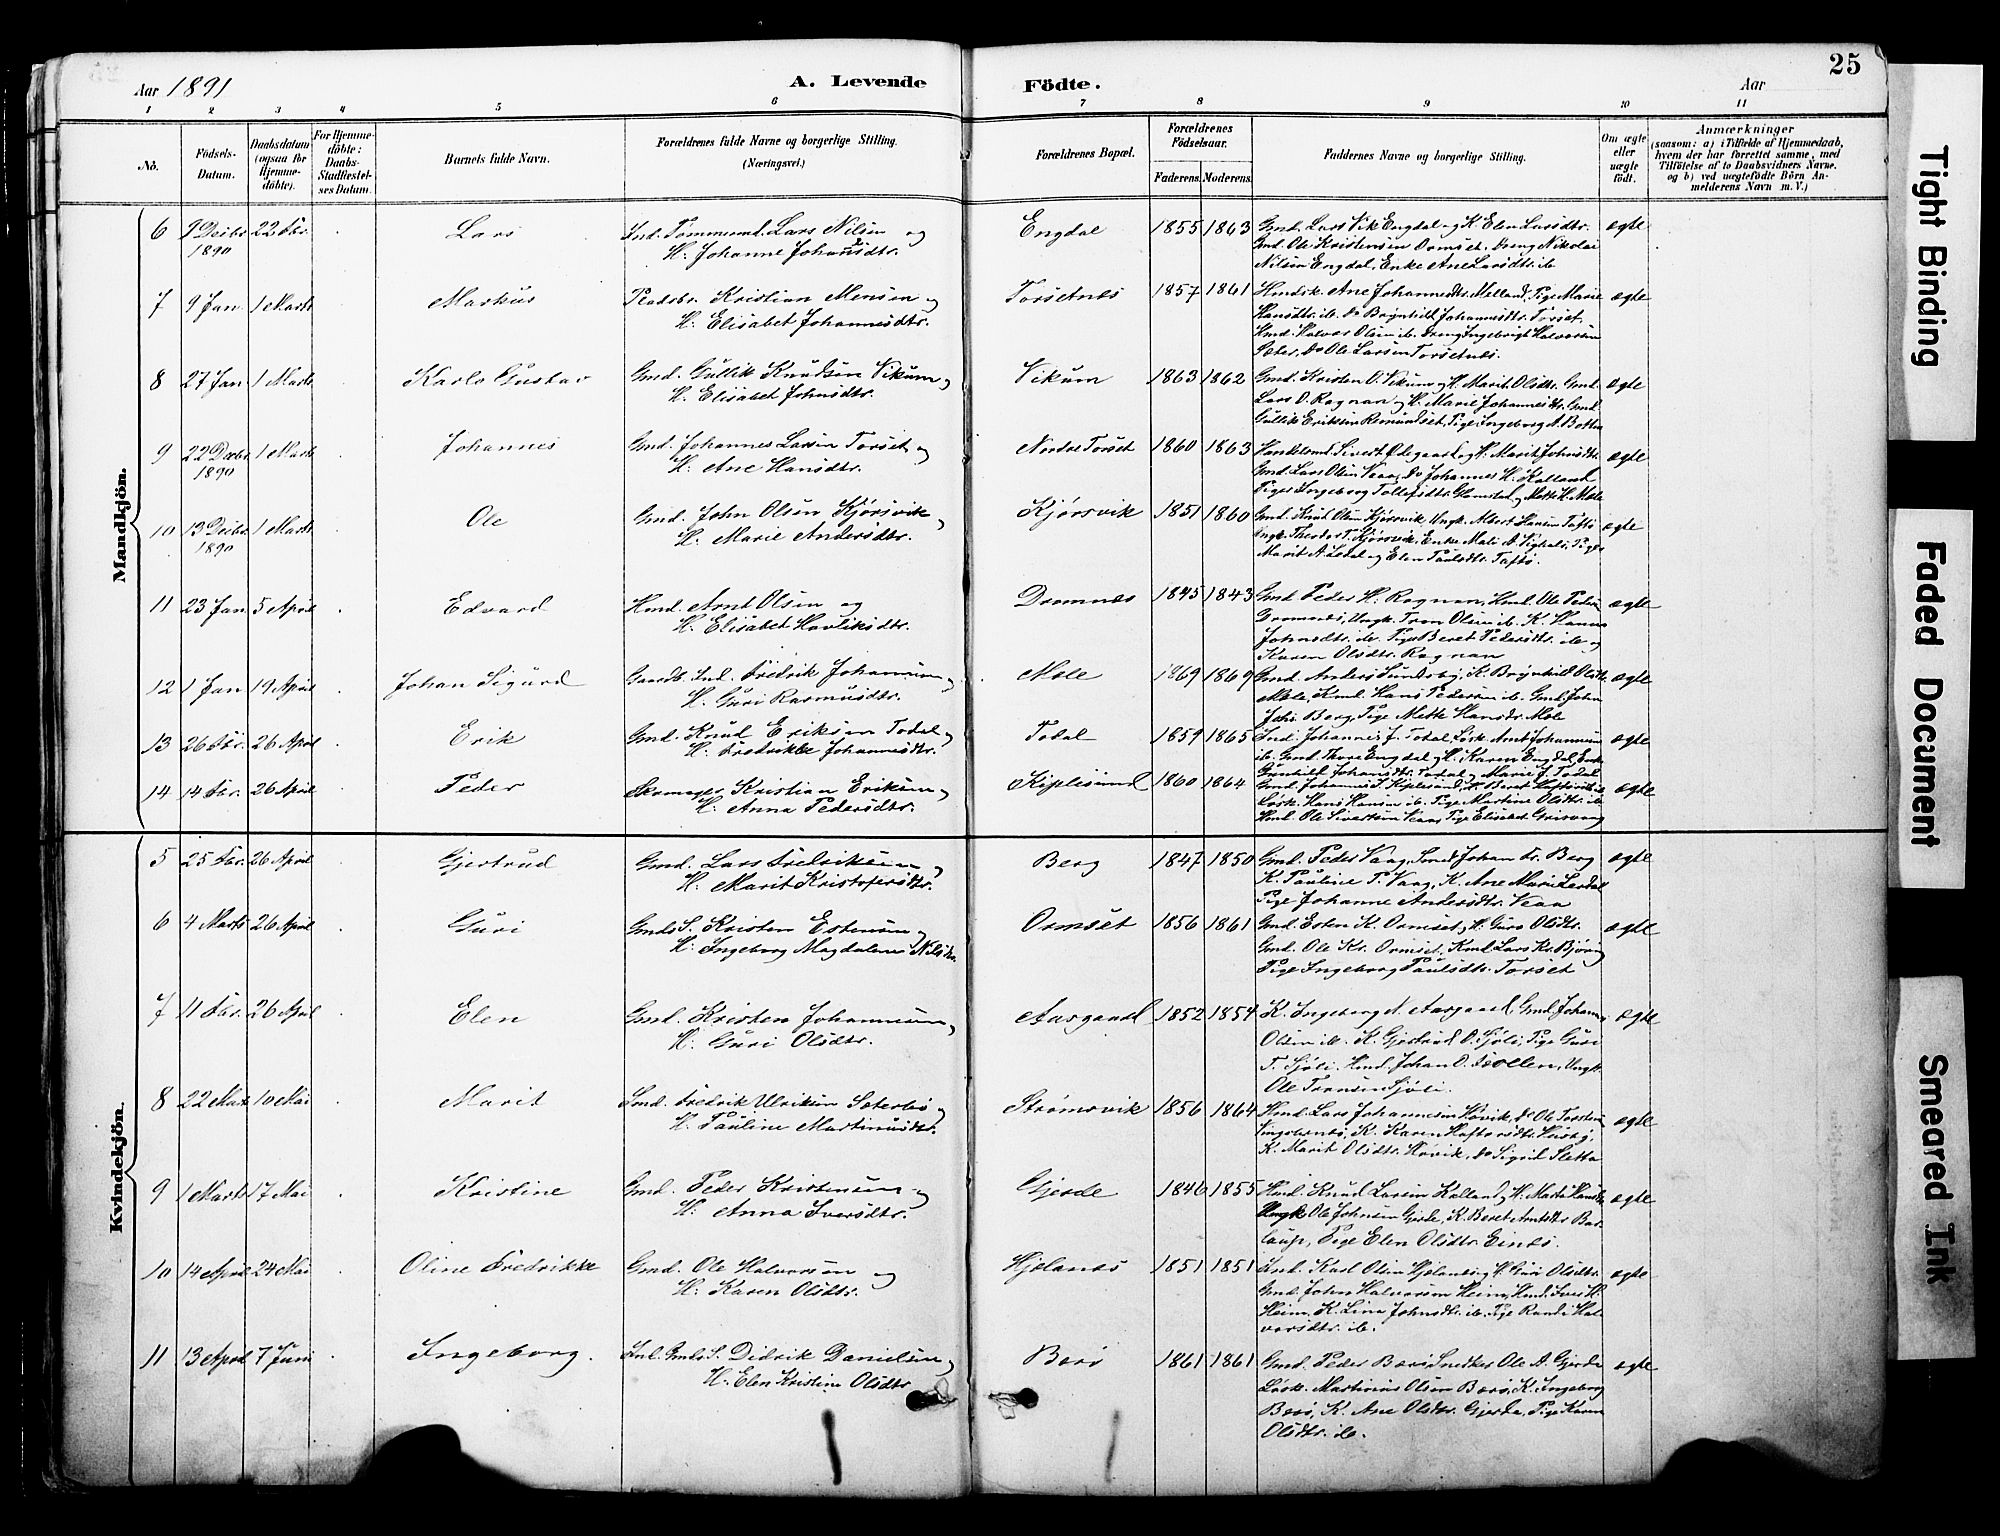 25
Aar 1891
A. Levende Födte.
Aar
1 2 3 4 5 6 7 8 9 10 11
No.
Födsels-Datum.
Daabsdatum (ogsaa for Hjemmedöbte).
For Hjemmedöbte: Daabs-Stadfæstelses Datum.
Barnets fulde Navn.
Forældrenes fulde Navne og borgerlige Stilling. (Næringsvei.)
Forældrenes Bopæl.
Forældrenes Födselsaar.
Faderens. Moderens.
Faddernes Navne og borgerlige Stilling.
Om ægte eller uægte födt.
Anmærkninger
(saasom: a) i Tilfælde af Hjemmedaab, hvem der har forrettet samme, med Tilföielse af to Daabsvidners Navne, og b) ved uægtefödte Börn Anmelderens Navn m. V.)
Mandkjön.
6 9 Decbr 1890 22 Fbr. Lars Ind. Tømmermd. Lars Nilsen og
H. Johanne Johansdtr.
Engdal 1855 1863 Gmd. Lars Vik Engdal og K. Elen Larsdtr. ægte
Gmd. Ole Kristensen Ormset, Dreng Nikolai
Nilsen Engdal, Enke Ane Larsdtr. ib
7 9 Jan. 1 Marts Markus Pladsbr. Kristian Monsen og
H. Elisabet Johannesdtr.
Torsetnes 1857 1861 Ane Johannesdtr. Melland, Pige Marie ægte
Hansdtr. ib. Do Brynhild Johannesdtr. Torset,
Hmd. Halvor Olsen ib. Dreng Ingebrigt Halvorsen
Sæter, Do Ole Larsen Torsetnes.
8 27 Jan 1 Marts Karls Gustav Gmd. Gullik Knudsen Vikum og
H. Elisabet Johnsdtr.
Vikum 1863 1862 Gmd. Kristen O. Vikum og H. Marit Olsdtr. Gmd. ægte
Lars O. Rognan og H. Marie Johannesdtr. Gmd.
Gullik Eriksen Romundset, Pige Ingeborg A. Botten
9 22 Decbr 1890 1 Marts Johannes Gmd. Johannes Larsen Torset og
H. Ane Hansdtr.
Nordre Torset 1860 1863 Handelsmd. Sivert Ødegaard og H. Marit Johnsdtr. ægte
Gmd. Lars Olsen Vaag, Do Johannes H. Kalland
Piger Ingeborg Tollefsdtr. Glamstad og Mette H. Mole
10 13 Decbr. 1890 1 Marts Ole Gmd. John Olsen Kjørsvik og
H. Marie Andersdtr.
Kjørsvik 1851 1860 Gmd. Knud Olsen Kjørsvik, Ungk. Albert Hansen Taftø ægte
Ungk. Theodor T. Kjørsvik, Enke Mali A. Pige
Marit A. Lodal og Elen Paulsdtr. Taftø.
11 23 Jan 5 April Edvard Hmd. Arnt Olsen og
H. Elisabet Havliksdtr.
Dromnes 1845 1843 Gmd. Peder H. Rognan, Hmd. Ole Peders. ægte
Dromnes, Ungk. Tron Olsen ib. K. Hanna
Johnsdtr. ib. Pige Beret Pedersdtr. ib og
Karen Olsdtr. Rognan
12 1 Jan 19 April Johan Sigurd Gaardb. Ind. Fredrik Johansen og
H. Guri Rasmusdtr.
Mole 1869 1869 Gmd. Anders Sundsby, K. Brynhild Olsdtr. ægte
Mole, Hmd. Hans Pedersen ib. Gmd. John
Johs. Berg, Pige Mette Hansdtr. Mole
13 26 Fbr. 26 April Erik Gmd. Knud Eriksen Todal og
H. Fredrikke Johannesdtr.
Todal 1859 1865 Ind. Johannes J. Todal, Løsk. Arnt Johannesen ægte
ib. Gmd. Thore Engdal og H. Karen Engdal, Enke
Gunhild Johansdtr. Todal og Marie J. Todal
14 14 Fbr. 26 April Peder Skomager Kristian Eriksen og
H. Anna Pedersdtr.
Kiplesund 1860 1864 Gmd. Johannes J. Kiplesund, K. Beret ægte
Løsk. Hans Hansen ib. Pige Martine Olsdtr. ib
Hmd. Ole Sivertsen Vaag, Pige Elisabet Grisvaag
Kvindekjön.
5 25 Fbr. 26 April Gjertrud Gmd. Lars Fredriksen og
H. Marit Kristofersdtr.
Berg 1847 1850 Gmd. Peder Vaag, Smed Johan Fr. Berg ægte
K. Pauline P. Vaag, K. Ane Marie Lordal
Pige Johanne Andersdtr. Veaa
6 4 Marts 26 April Guri Gmds S. Kristen Estensen og
H. Ingeborg Magdalene Nilsdtr.
Ormset 1856 1861 Gmd. Esten K. Ormset, H. Guro Olsdtr. ægte
Gmd. Ole Kr. Ormset, Hmd. Lars Kr. Bjøring
Pige Ingeborg Paulsdtr. Torset
7 11 Fbr. 26 April Elen Gmd. Kristen Johannesen og
H. Guri Olsdtr.
Aasgaard 1852 1854 K. Ingeborg A. Aasgaard, Gmd. Johannes ægte
Olsen ib. K. Gjertrud O. Sjøli, Pige Guri
T. Sjøli. Hmd. Johan O. Svollen, Ungk.
Ole Tronsen Sjøli.
8 22 Marts 10 Mai Marit Smd. Fredrik Ulriksen Sæterbø og
H. Pauline Martinusdtr.
Strømsvik 1856 1864 Hmd. Lars Johannesen Høvik, Do Ole Torstens. ægte
K. Karen Haftorsdtr. Husby,
K. Marit Olsdtr. Høvik, Do Sigrid Sletta
9 1 Marts 17 Mai Kristine Gmd. Peder Kristensen og
H. Anna Iversdtr.
Gjerde 1846 1855 Hmd. Knud Larsen Kalland og H. Marta Hansdtr. ægte
Ungk Ole Johnsen Gjerde, K. Beret Arntsdtr. Bar-
laup, Pige Elen Olsdtr. Eines.
10 14 April 24 Mai Oline Fredrikke Gmd. Ole Halvorsen og
H. Karen Olsdtr.
Hjelanes 1851 1851 Ind. Karl Olsen Hjelanes og H. Guri Olsdtr. ægte
Gmd. John Halvorsen Heim, Hmd. Iver H.
Heim, K. Lina Johnsdtr. ib, Pige Randi Hal-
vorsdtr. ib.
11 13 April 7 Juni Ingeborg. Ind. Gmds S. Didrik Danielsen og
H. Elen Kristine Olsdtr
Børø 1861 1861 Gmd. Peder Børø, Snedker Ole A. Gjerde ægte
Løsk. Martinus Olsen Børø, K. Ingeborg
Børø, K. Ane Olsdtr. Gjerde, Pige Karen
Olsdtr. ib.
Tight Binding
Faded Document
Smeared Ink